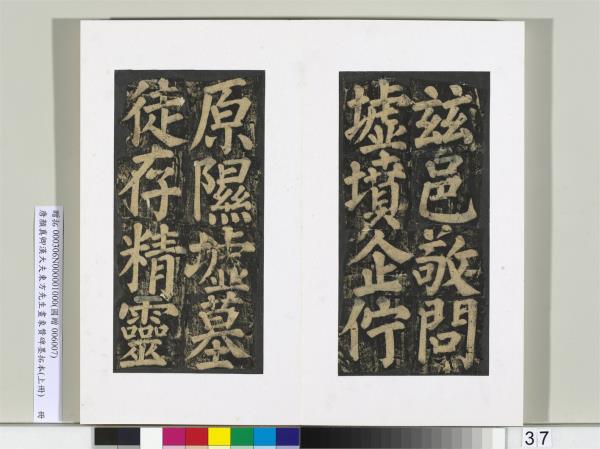 兹邑敬問
墟墳企佇
原隰墟墓
徒存精靈
贈拓 000306N000001000(國贈 006007)
唐顏真卿漢大夫東方先生畫象贊碑墨拓本(上冊) 冊
37